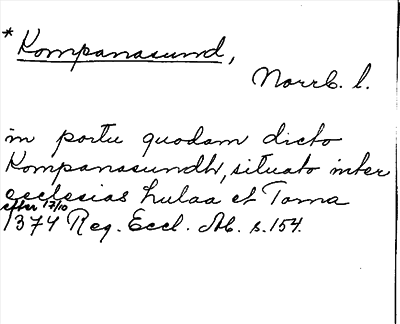 *Kompanasund,
Norrb. l.
in portu quodam dicto
Kompanasundh, situato inter
ecclesias Lulaa et Torna
efter 17/10
1374 Reg. Eccl. Ab. s. 154.